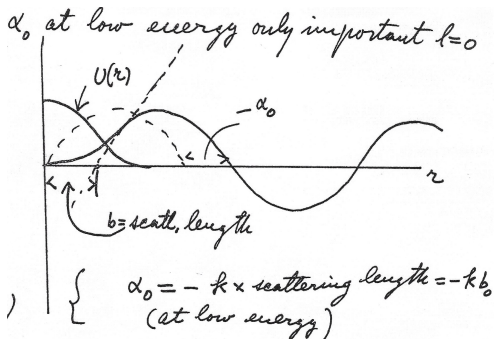 α₀ at low energy only important l=0
U(r)
-α₀
r
b=scatt. length
) { α₀ = - k × scattering length = -kb₀
(at low energy)